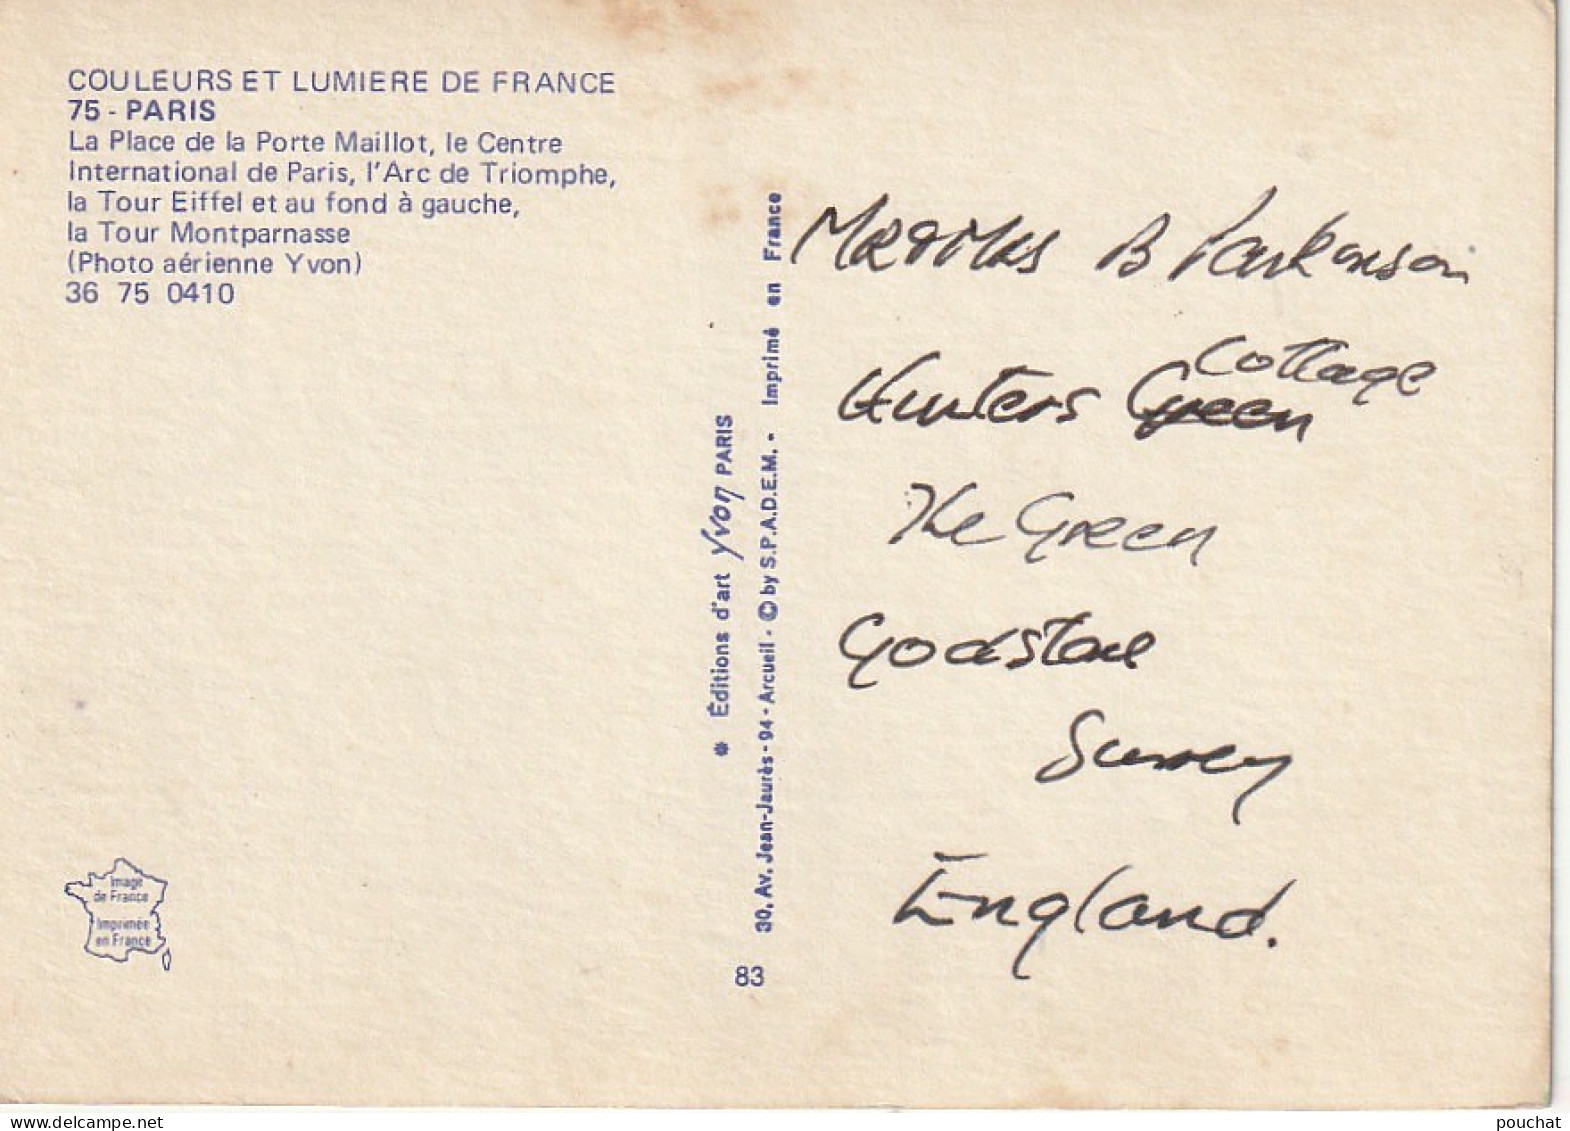 COULEURS ET LUMIERE DE FRANCE
75 - PARIS
La Place de la Porte Maillot, le Centre
International de Paris, l'Arc de Triomphe,
la Tour Eiffel et au fond à gauche,
la Tour Montparnasse
(Photo aérienne Yvon)
36 75 0410
Image
de France
Imprimée
en France
* Éditions d'art Yvon PARIS
30, Av. Jean-Jaurès - 94 - Arcueil - © by S.P.A.D.E.M. - Imprimé en France
83
MR & MRS B Parkinson
Hunters Green Cottage
The Green
Godstone
Surrey
England.
www.delcampe.net
pouchat